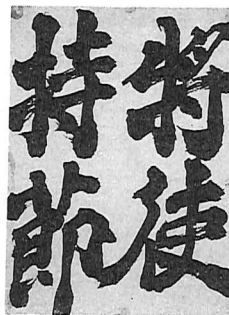 將使
持節